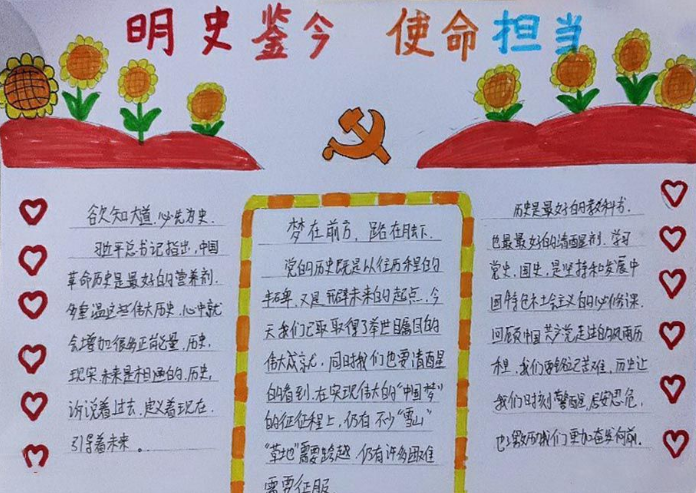 明史鉴今 使命担当
欲知大道,必先为史.
习近平总书记指出,中国
革命历史是最好的营养剂.
多重温这些伟大历史,心中就
会增加很多正能量,历史,
现实,未来是相通的.历史,
诉说着过去,定义着现在.
引导着未来。
梦在前方,路在脚下.
党的历史既是以往历程的
丰碑,又是开辟未来的起点,今
天我们已取取得了举世瞩目的
伟大成就,同时我们也要清醒
的看到,在实现伟大的“中国梦”
的征征程上,仍有不少“雪山”
“草地”需要跨越,仍有许多困难
需要征服
历史是最好的教科书.
也最最好的清醒剂.学习
党史,国史,是坚持和发展中
国特色社会主义的必修课.
回顾中国共产党走过的风雨历
程,我们两苦难,历史让
我们时刻警醒,居安思危,
也激励我们更加奋发向前.